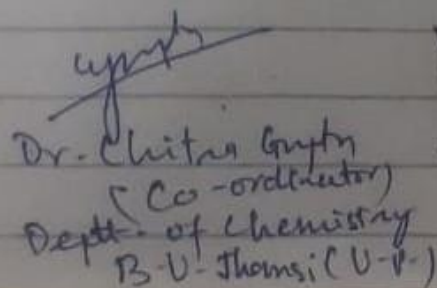 Dr. Chitra Gupta
(Co-ordinator)
Deptt. of Chemistry
B.U. Jhansi (U.P.)